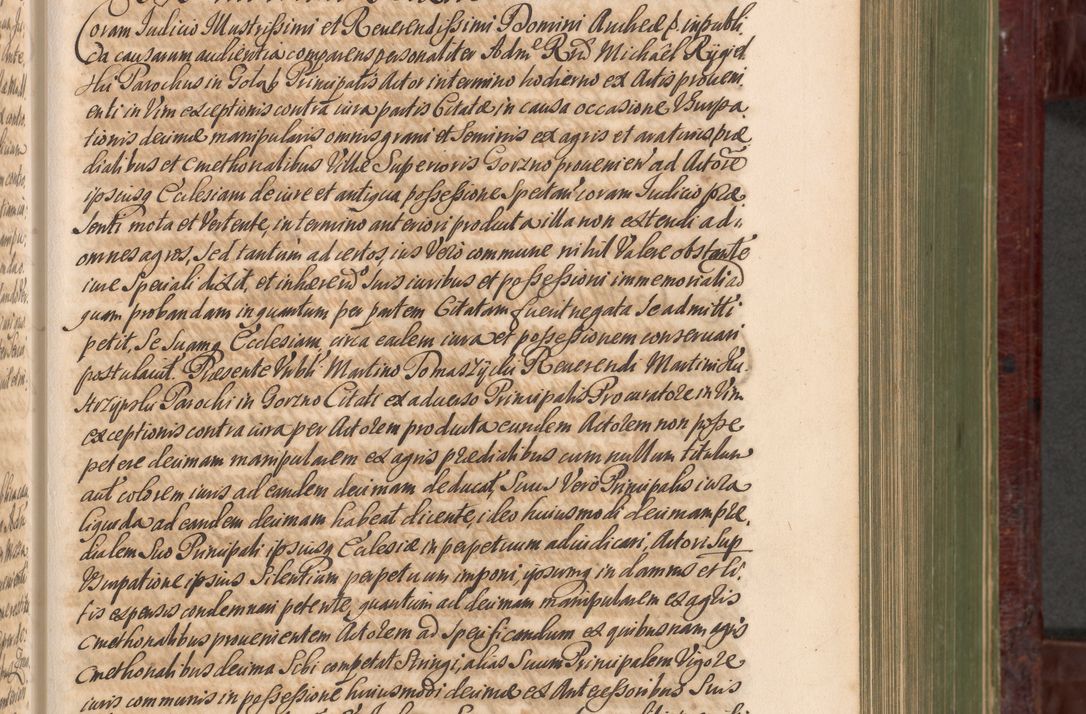 Coram Iudicio Illustrissimi et Reverendissimi Domini Auxhee
ca causarum audientia comparens personaliter Adm. Rnd Michael
Parochus in Golab Principalis Actor in termino hodierno ex Actis proveni
enti in Vim exceptionis contra iura partis Citatæ in causa occasione Usurpa
tionis decimæ manipularis omnis grani et Seminis ex agris et araturis præ
dialibus et cmethonalibus Villæ Superioris Gorzno provenien ad Actorē
ipsiusq Ecclesiam de iure et antiqua possessione Spectan coram Iudicio præ
senti mota et Vertente, in termino anteriori producta illa non extendi ad
omnes agros, Sed tantum ad certos, ius Vero commune nihil Valere obstante
iure Speciali dixit, et inhærendo Suis iuribus et possessioni immemoriali ad
quam probandam in quantum per partem Citatam fuerit negata Se admitti
petit, Se Suamq Ecclesiam circa eadem iura et possessionem conservari
postulavit. Præsente Nobli Martino Tomaszycki Reverendi Martini
Parochi in Gorzno Citati ex adverso Principalis Procuratore in Vim
exceptionis contra iura per Actorem producta eundem Actorem non posse
petere decimam manipularem ex agris prædialibus cum nullum titulum
aut colorem iuris ad eandem decimam deducat, Suus Vero Principalis iura
liquida ad eandem decimam habeat dicente, ideo huiusmodi decimam præ
dialem Suo Principali ipsiusq Ecclesiæ in perpetuum adiudicari, Actori Sup
Usurpatione ipsius Silentium perpetuum imponi, ipsumq in damnis et li
tis expensis condemnari petente, quantum ad decimam manipularem ex agris
cmethonalibus provenientem Actorem ad Specificandum ex quibusnam agris
cmethonalibus decima Sibi competat Stringi, alias Suum Principalem Vigore
iuris communis in possessione huiusmodi decimæ ex Antecessoribus Suis